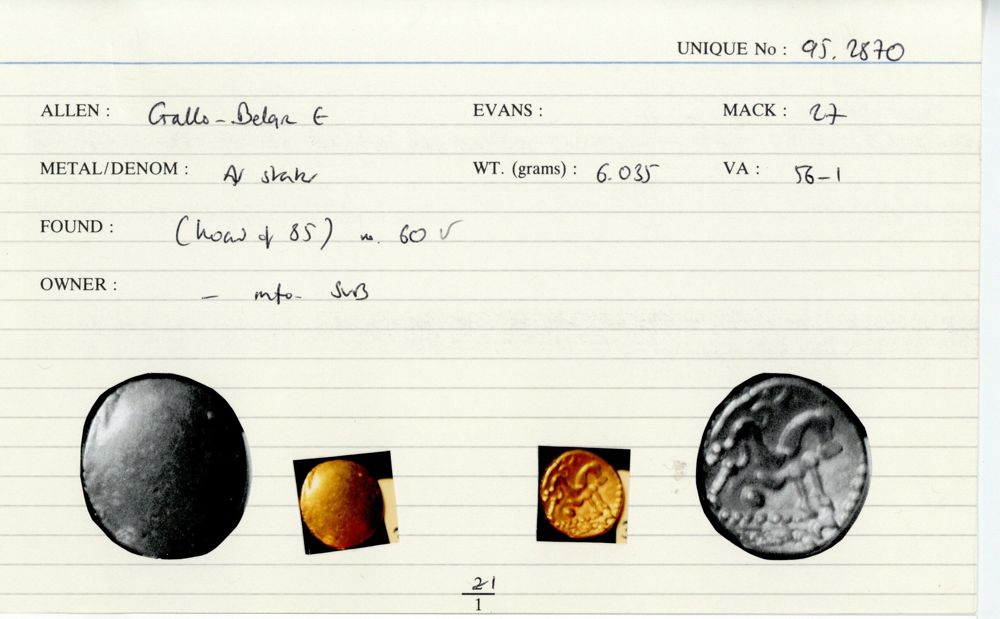 UNIQUE No : 95.2870
ALLEN : Gallo-Belgic E EVANS : MACK : 27
METAL/DENOM : AV stater WT. (grams) : 6.035 VA : 56-1
FOUND : (hoard of 85) no. 60 ✓
OWNER : – info.
21
1